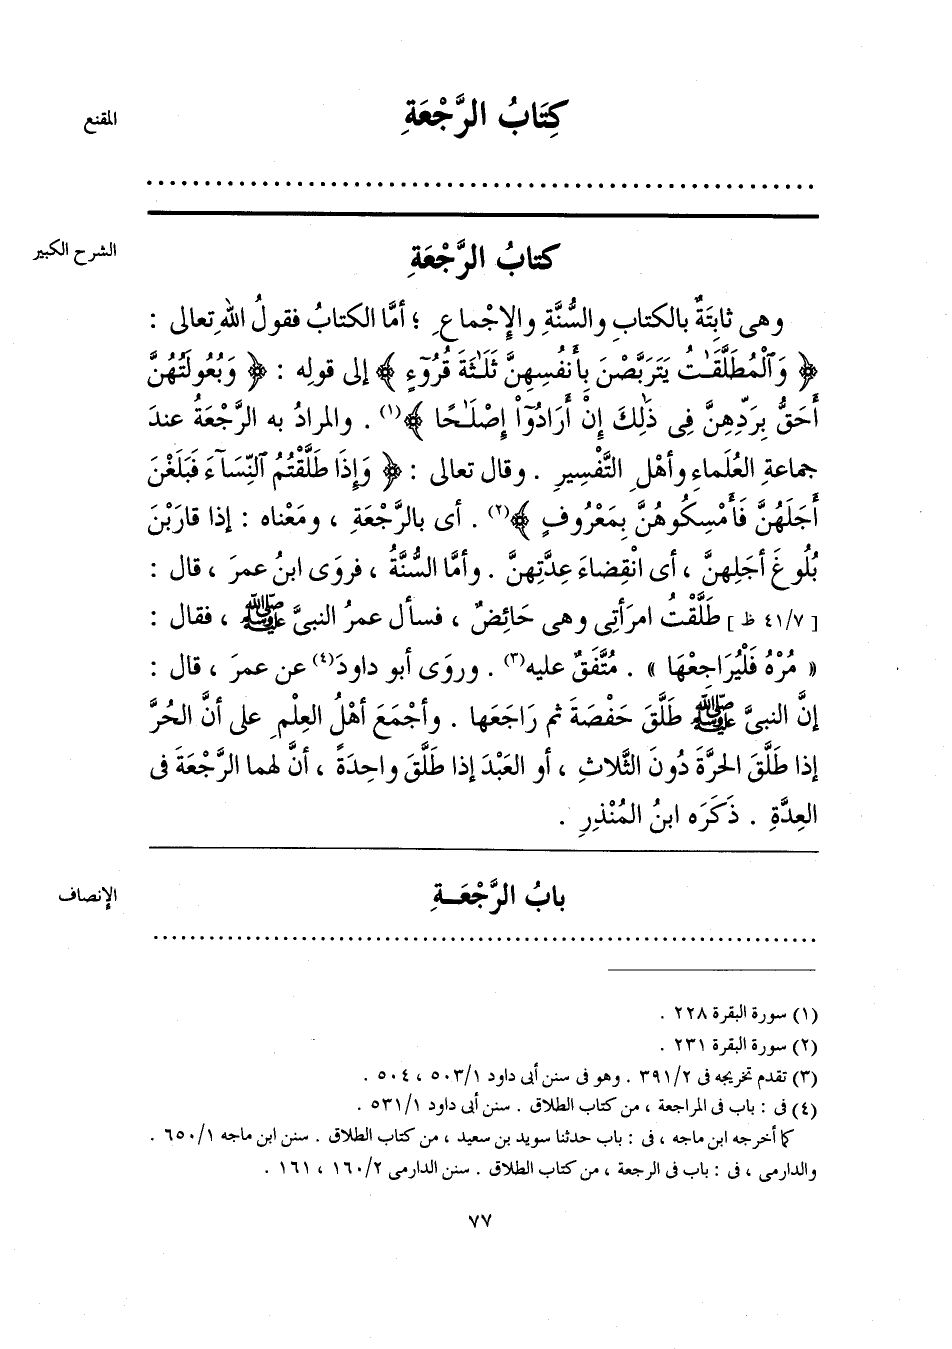 كِتَابُ الرَّجْعَةِ
المقنع
كتابُ الرَّجْعَةِ
الشرح الكبير
وهى ثابِتَةٌ بالكتابِ والسُّنَّةِ والإِجْماعِ ؛ أمَّا الكتابُ فقولُ اللهِ تعالى :
﴿ وَٱلْمُطَلَّقَـٰتُ يَتَرَبَّصْنَ بِأَنفُسِهِنَّ ثَلَـٰثَةَ قُرُوٓءٍ ﴾ إلى قولِه : ﴿ وَبُعُولَتُهُنَّ
أَحَقُّ بِرَدِّهِنَّ فِى ذَٰلِكَ إِنْ أَرَادُوٓاْ إِصْلَـٰحًا ﴾(١) . والمرادُ به الرَّجْعَةُ عندَ
جماعةِ العُلَماءِ وأهْلِ التَّفْسِيرِ . وقال تعالى : ﴿ وَإِذَا طَلَّقْتُمُ ٱلنِّسَآءَ فَبَلَغْنَ
أَجَلَهُنَّ فَأَمْسِكُوهُنَّ بِمَعْرُوفٍ ﴾(٢) . أى بالرَّجْعَةِ ، ومَعْناه : إذا قارَبْنَ
بُلُوغَ أجَلِهنَّ ، أى انْقِضاءَ عِدَّتِهنَّ . وأمَّا السُّنَّةُ ، فروَى ابنُ عمرَ ، قال :
[ ٤١/٧ ظ ] طَلَّقْتُ امرَأتِى وهى حَائِضٌ ، فسأل عمرُ النبىَّ ﷺ ، فقال :
« مُرْهُ فَلْيُرَاجِعْهَا » . مُتَّفَقٌ عليه(٣) . وروَى أبو داودَ(٤) عن عمرَ ، قال :
إنَّ النبىَّ ﷺ طَلَّقَ حَفْصَةَ ثم رَاجَعَها . وأجْمَعَ أهْلُ العِلْمِ على أنَّ الحُرَّ
إذا طَلَّقَ الحرَّةَ دُونَ الثَّلاثِ ، أو العَبْدَ إذا طَلَّقَ واحِدَةً ، أنَّ لهما الرَّجْعَةَ فى
العِدَّةِ . ذَكَرَه ابنُ المُنْذِرِ .
بابُ الرَّجْعَـــةِ
الإنصاف
(١) سورة البقرة ٢٢٨ .
(٢) سورة البقرة ٢٣١ .
(٣) تقدم تخريجه فى ٣٩١/٢ . وهو فى سنن أبى داود ٥٠٣/١ ، ٥٠٤ .
(٤) فى : باب فى المراجعة ، من كتاب الطلاق . سنن أبى داود ٥٣١/١ .
كما أخرجه ابن ماجه ، فى : باب حدثنا سويد بن سعيد ، من كتاب الطلاق . سنن ابن ماجه ٦٥٠/١ .
والدارمى ، فى : باب فى الرجعة ، من كتاب الطلاق . سنن الدارمى ١٦٠/٢ ، ١٦١ .
٧٧